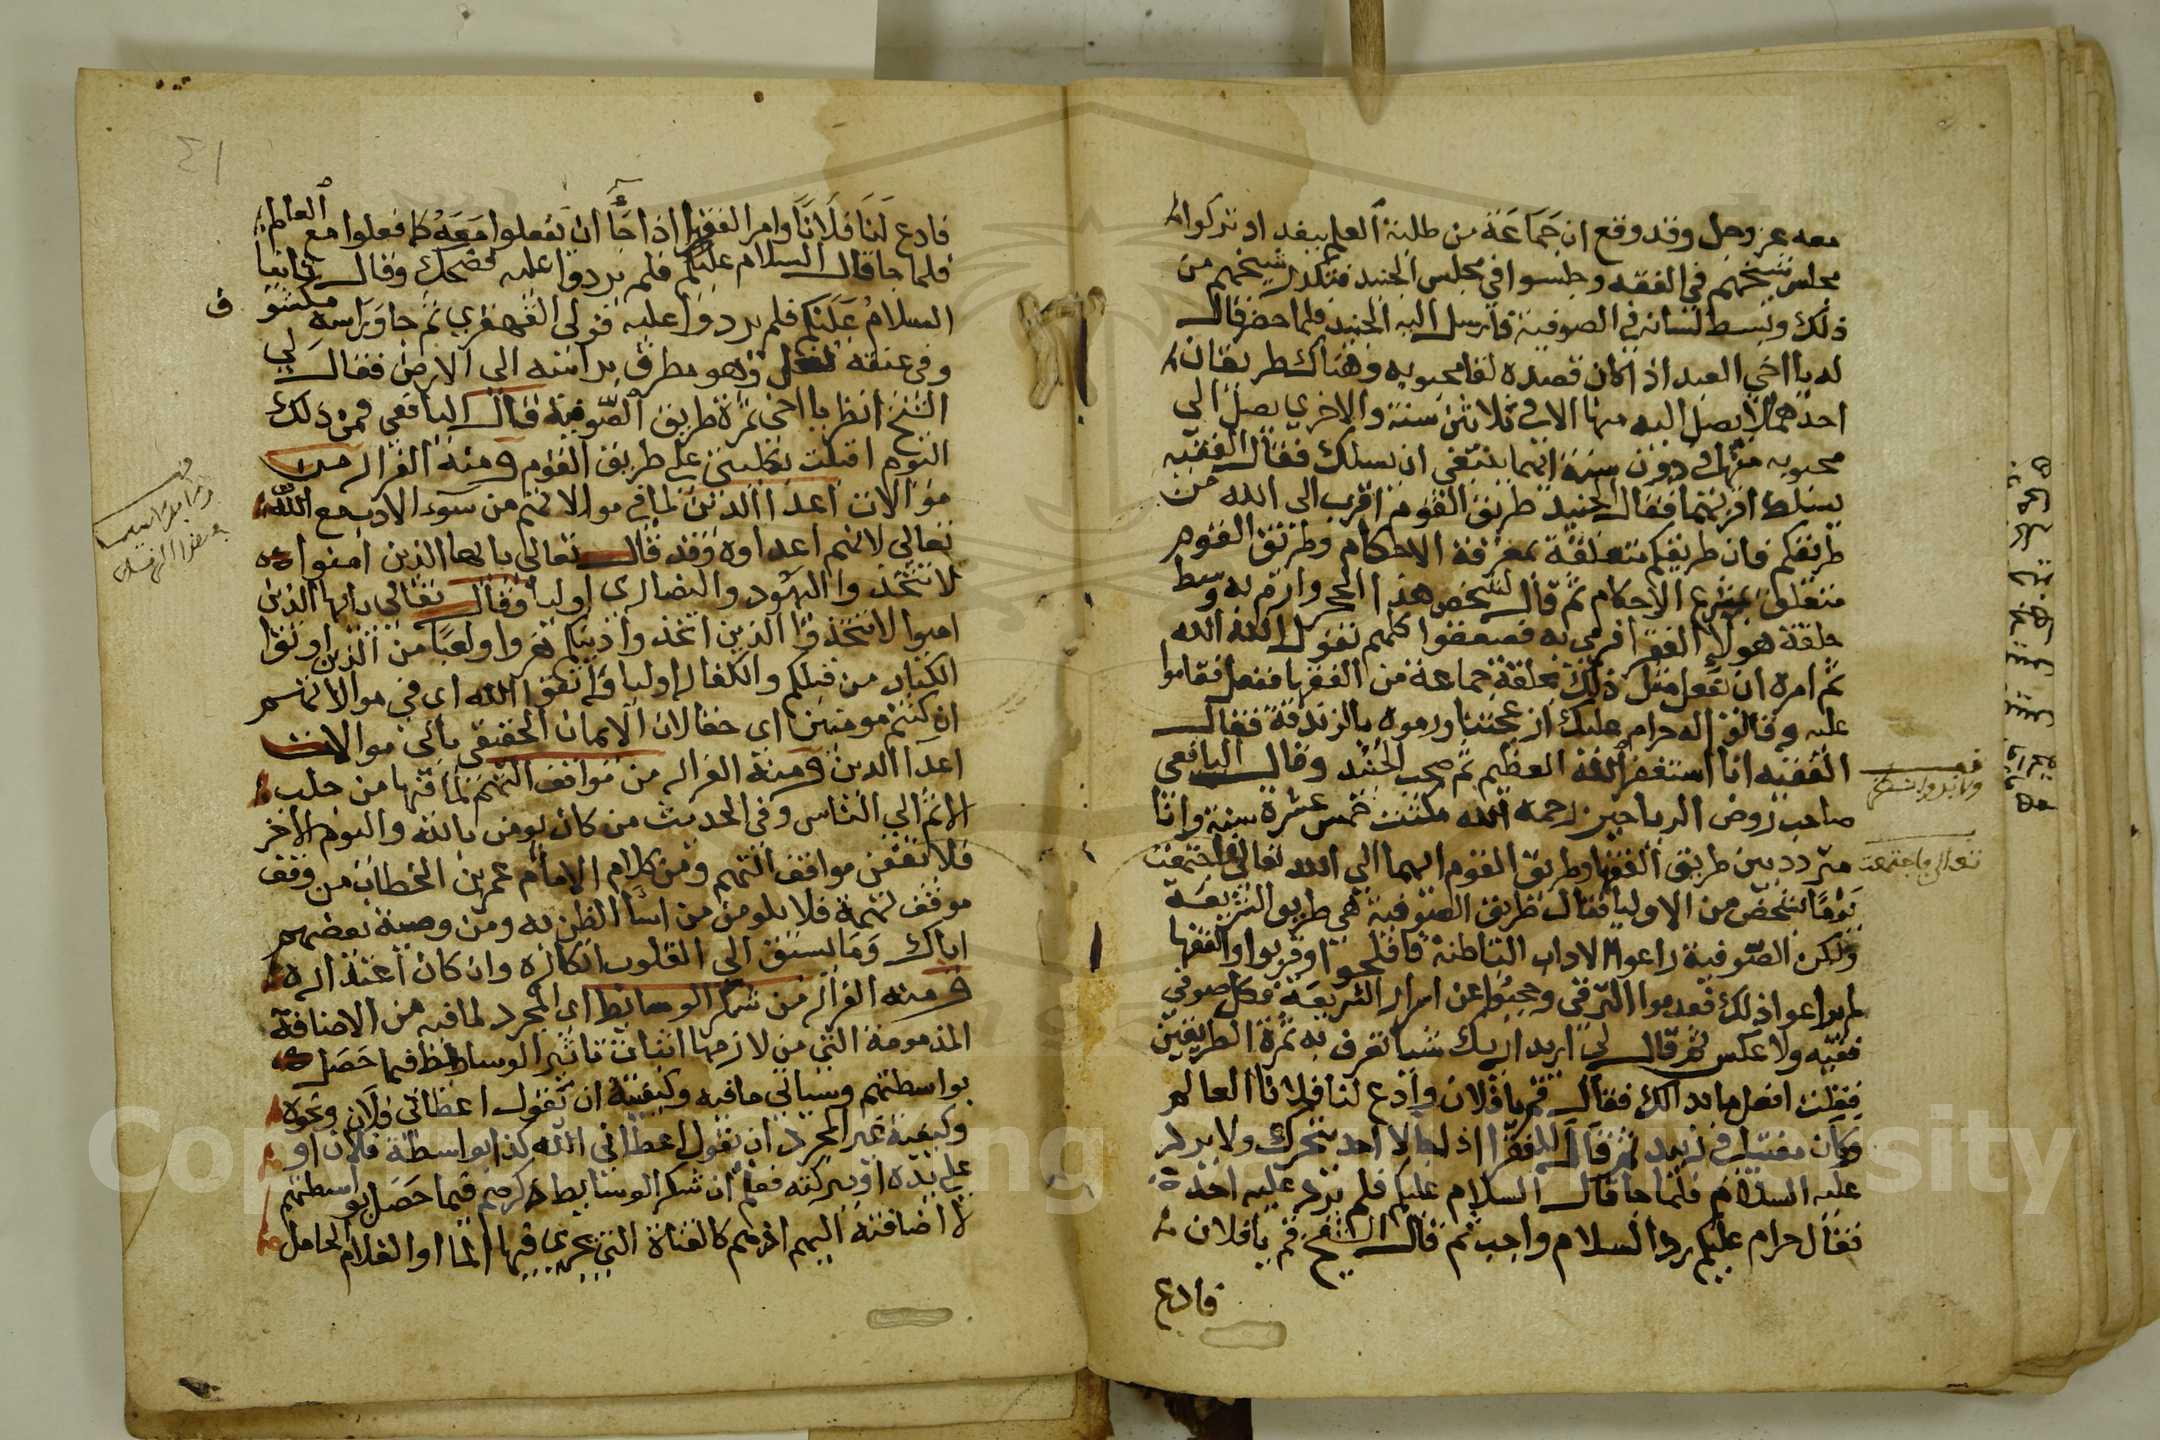 معه عز وجل وقد وقع ان جماعة من طلبة العلم ببغداد تركوا
مجلس شيخهم في الفقه وجلسوا في مجلس الجنيد فتكدر شيخهم من
ذلك وبسط لسانه في الصوفية فارسل اليه الجنيد فلما حضر قال
له يا اخي العبد اذا كان قصده لقا محبوبه وهناك طريقان
احدهما لا يصل اليه منها الا في ثلاثين سنة والاخري يصل الي
محبوبه منها في دون سنة ايهما ينبغي ان يسلك فقال الفقيه
يسلك اقربهما فقال الجنيد طريق القوم اقرب الى الله من
طريقكم فان طريقكم متعلقة بمعرفة الاحكام وطريق القوم
متعلق بشرع الاحكام ثم قال لشخص هذا الحجر وارم به وسط
حلقة هولاء الفقرا فرمي به فصعقوا كلهم تقول الله الله
ثم امره ان يفعل مثل ذلك بحلقة جماعة من الفقها ففعل فقاموا
عليه وقالوا له حرام عليك ازعجتنا ورموه بالزندقة فقال
الفقيه انا استغفر الله العظيم ثم صحب الجنيد وقال اليافعي
صاحب روض الرياحين رحمه الله مكثت خمس عشرة سنة وانا
متردد بين طريق الفقها وطريق القوم ايهما الي الله تعالي فاجتمعت
يوما بشخص من الاوليا فقال طريق الصوفية هي طريق الشريعة
ولكن الصوفية راعوا الاداب الباطنة فافلحوا وقربوا والفقها
لم يراعوا ذلك فعدموا الترقي وحجبوا عن اسرار الشريعة فكل صوفي
فقيه ولا عكس ثم قال لي اريد اريك شيا تعرف به ثمرة الطريقين
فقلت افعل ما بدالك فقال قم يا فلان وادع لنا فلانا العالم
وكان مفتيا في زبيد ثم قال للفقرا اذا جا لا احد يتحرك ولا يرد
عليه السلام فلما جا قال السلام عليكم فلم يرد عليه احد
فقال حرام عليكم رد السلام واجب ثم قال الشيخ قم يا فلان
فادع
تعالي فاجتمعت
٤١
فادع لنا فلانا وامر الفقرا اذا جا ان يفعلوا معه كما فعلوا مع العالم
فلما جا قال السلام عليكم فلم يردوا عليه فضحك وقال ثانيا
السلام عليكم فلم يردوا عليه فتولى القهقري ثم جا وراسه مكشو
ف
وفى عنقه نعل وهو مطرق براسه الى الارض فقال لي
الشيخ انظر يا اخي ثمرة طريق الصوفية قال اليافعي فمن ذلك
اليوم اقبلت بكليتي على طريق القوم ومنه الفرار من
موالات اعدا الدين لما في موالاتهم من سوء الادب مع الله
تعالي لانهم اعداوه وقد قال تعالي يا ايها الذين امنوا
لا تتخذوا اليهود والنصاري اوليا وقال تعالي يا ايها الذين
امنوا لا تتخذوا الذين اتخذوا دينكم هزوا ولعبا من الذين اوتوا
الكتاب من قبلكم والكفار اوليا واتقوا الله اى في موالاتهم
ان كنتم مومنين اى حقا لان الايمان الحقيقي يابي موالات
اعدا الدين ومنه الفرار من مواقف التهم لما فيها من جلب
الاثم الي الناس وفي الحديث من كان يومن بالله واليوم الاخر
فلا يقفن مواقف التهم ومن كلام الامام عمر بن الخطاب من وقف
موقف تهمة فلا يلومن من اسا الظن به ومن وصية بعضهم
اياك وما يسبق الي القلوب انكاره وان كان اعتذاره
ومنه الفرار من شكر الوسايط اى المجرد لما فيه من الاضافة
المذمومة التي من لازمها اثبات تاثير الوسايط فيما حصل
بواسطتهم وسياتي ما فيه وكيفيته ان تقول اعطاني فلان ونحوه
وكيفية غير المجرد ان تقول اعطاني الله كذا بواسطة فلان او
علي يده او ببركته فعلم ان شكر الوسايط ذكرهم فيما حصل بواسطتهم
لا اضافته اليهم اذ هم كالقناة التي يجري فيها الما او الغلام الحامل